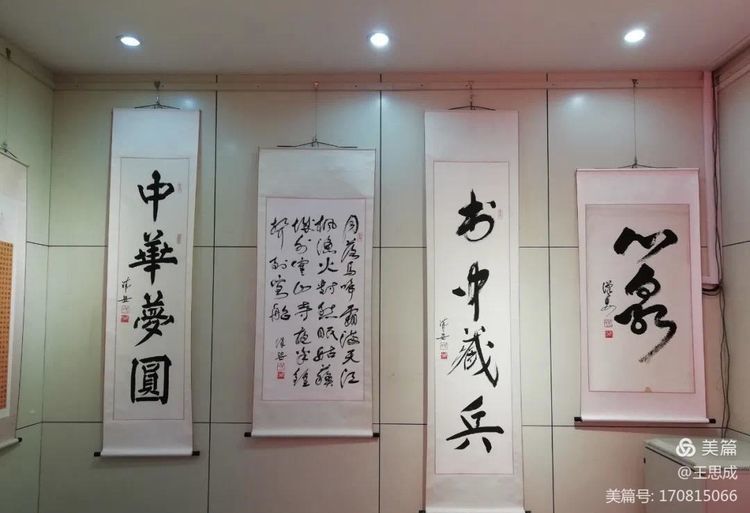 中華夢圓
月落烏啼霜滿天江
楓漁火對愁眠姑蘇
城外寒山寺夜半鐘
聲到客船
书中藏兵
心泉
美篇
@王思成
美篇号: 170815066